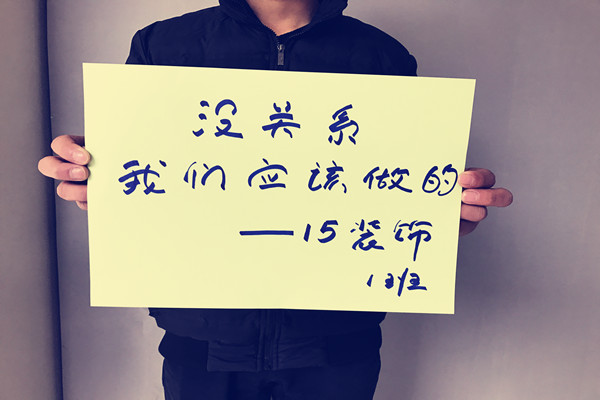 没关系
我们应该做的
——15装饰
1班